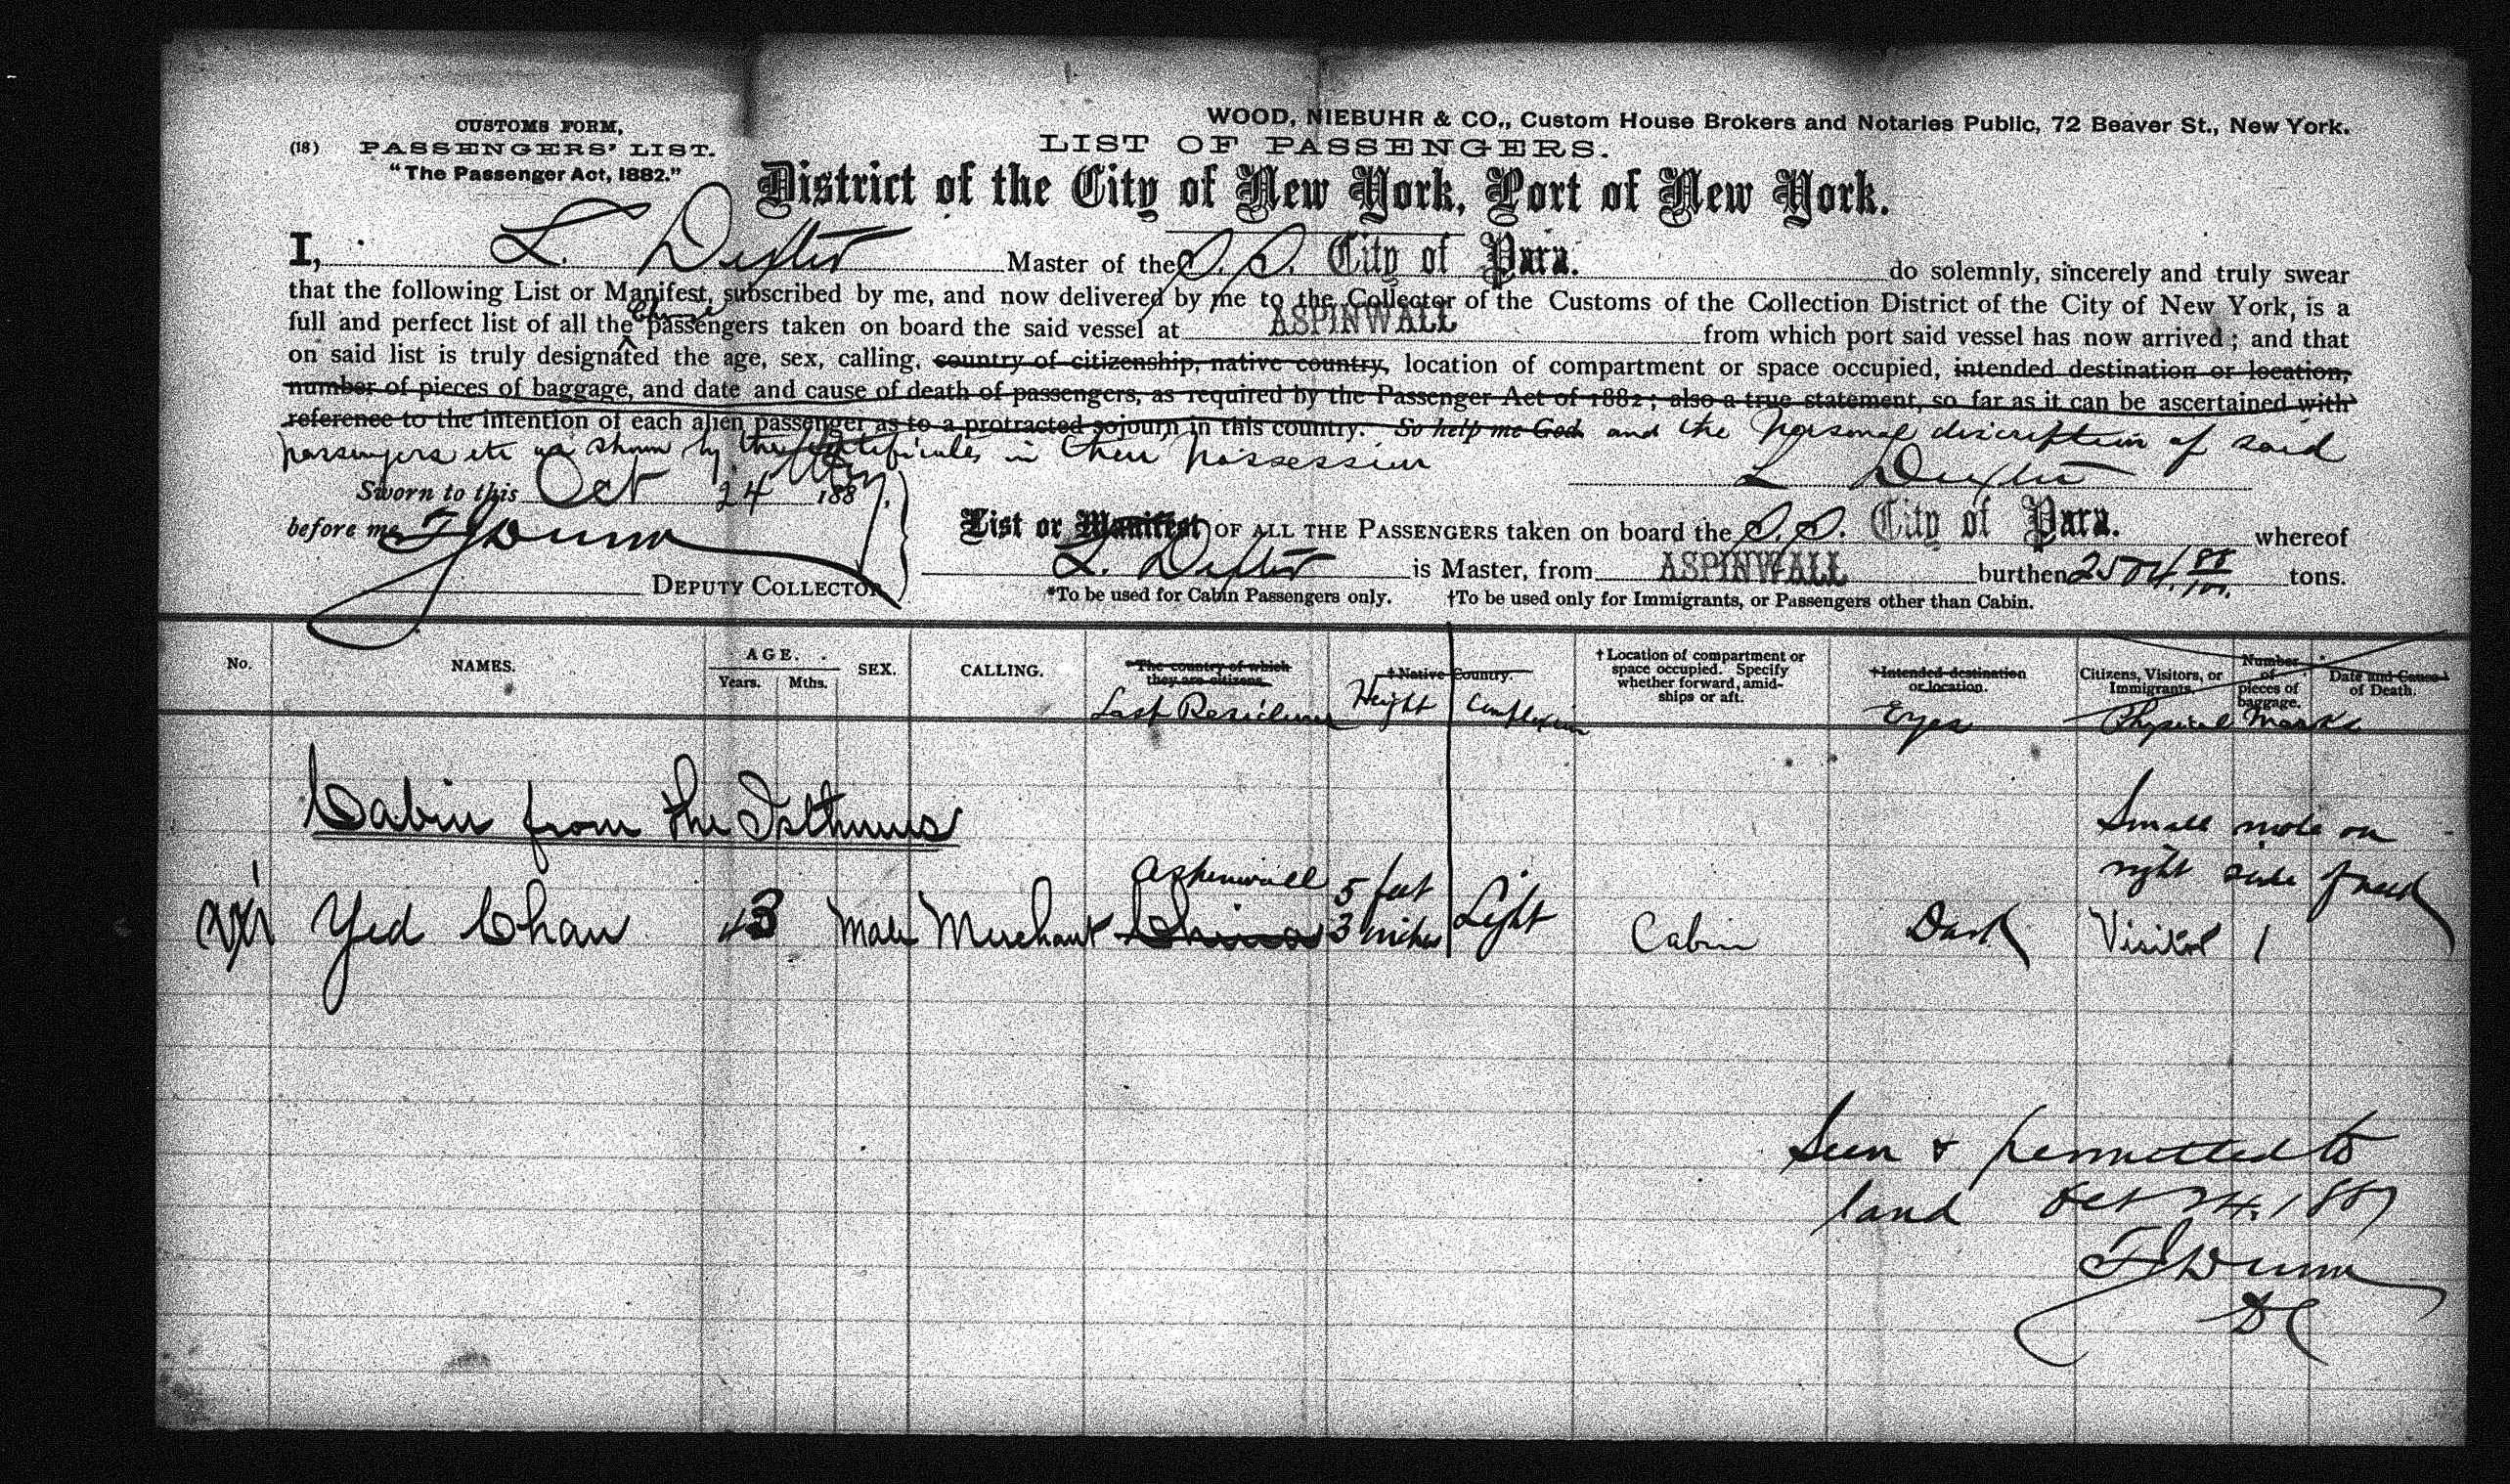 WOOD, NIEBUHR & CO., Custom House Brokers and Notaries Public, 72 Beaver St., New York.
CUSTOMS FORM,
(18) PASSENGERS' LIST.
"The Passenger Act, 1882."
LIST OF PASSENGERS.
District of the City of New York, Port of New York.
I, L. Dexter Master of the S.S. City of Para. do solemnly, sincerely and truly swear
that the following List or Manifest, subscribed by me, and now delivered by me to the Collector of the Customs of the Collection District of the City of New York, is a
full and perfect list of all the Chinese passengers taken on board the said vessel at ASPINWALL from which port said vessel has now arrived; and that
on said list is truly designated the age, sex, calling, country of citizenship, native country, location of compartment or space occupied, intended destination or location,
number of pieces of baggage, and date and cause of death of passengers, as required by the Passenger Act of 1882; also a true statement, so far as it can be ascertained with
reference to the intention of each alien passenger as to a protracted sojourn in this country. So help me God. and the personal discription of said
passengers etc as shown by the certificates in their possession
Sworn to this Oct 24 1887,
L Dexter
before me
DEPUTY COLLECTOR
List or Manifest OF ALL THE PASSENGERS taken on board the S.S. City of Para. whereof
L. Dexter is Master, from ASPINWALL burthen 2504 88/100 tons.
*To be used for Cabin Passengers only. †To be used only for Immigrants, or Passengers other than Cabin.
No. NAMES. AGE. Years. Mths. SEX. CALLING. *The country of which they are citizens. †Native Country. †Location of compartment or space occupied. Specify whether forward, amidships or aft. †Intended destination or location. Citizens, Visitors, or Immigrants. Number of pieces of baggage. Date and Cause of Death.
Last Residence Height Complexion Eyes Physical Marks
Cabin from the Isthmus
Small mole on
right side of neck
Aspinwall 5 feet
1 Yed Chan 43 Male Merchant China 3 inches Light Cabin Dark Visitor 1
Seen & permitted to
land Oct 24. 1887
F J Dunn
DC